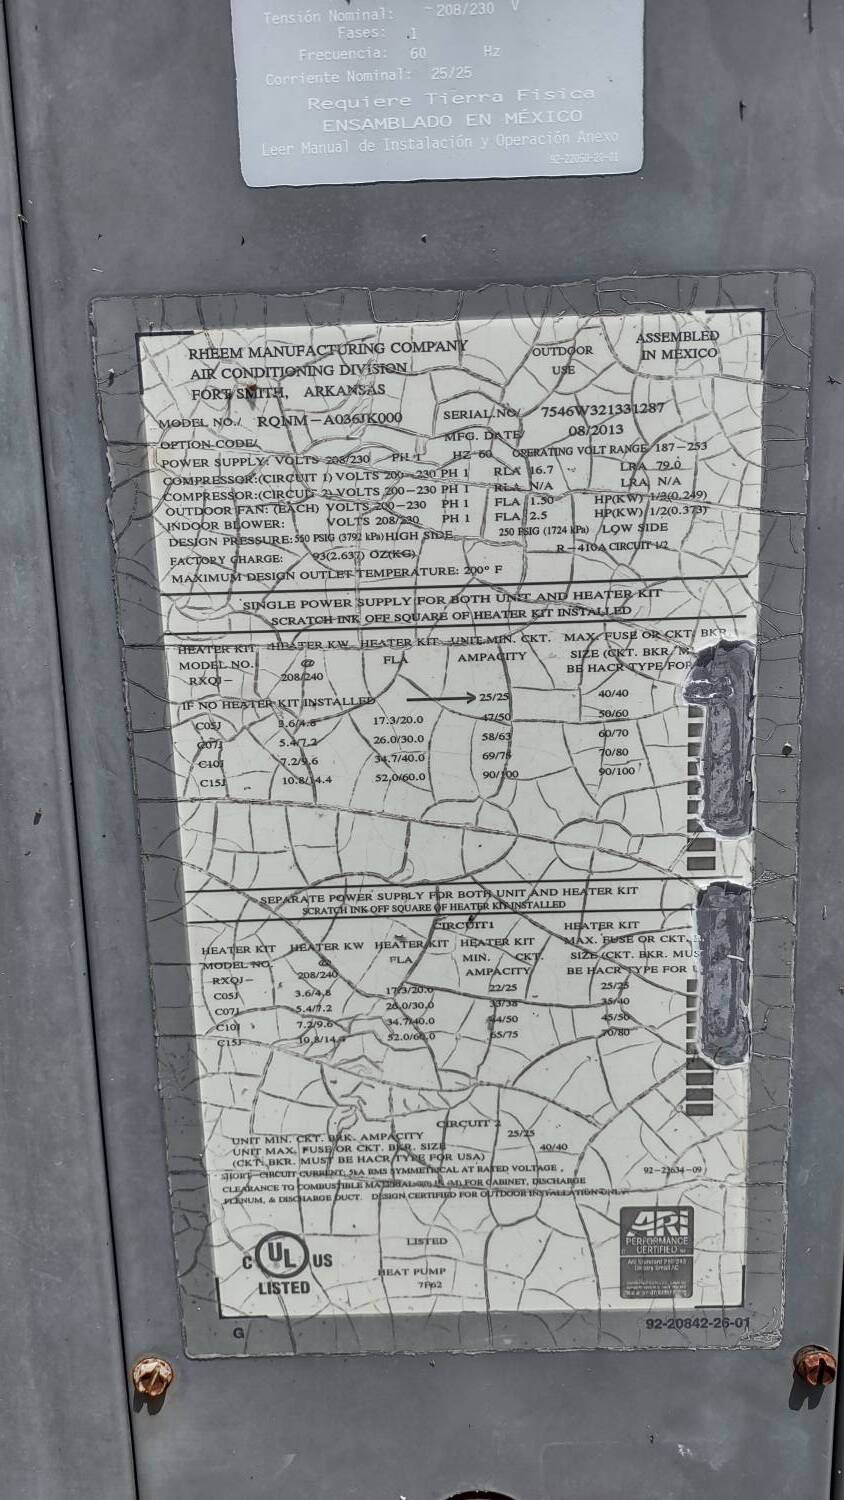 Tensión Nominal: ~208/230 V
Fases: 1
Frecuencia: 60 Hz
Corriente Nominal: 25/25
Requiere Tierra Fisica
ENSAMBLADO EN MÉXICO
Leer Manual de Instalación y Operación Anexo
92-22050-20-01
RHEEM MANUFACTURING COMPANY
AIR CONDITIONING DIVISION
FORT SMITH, ARKANSAS
OUTDOOR
USE
ASSEMBLED
IN MEXICO
MODEL NO./ RQNM-A036JK000 SERIAL NO/ 7546W321331287
OPTION CODE/ MFG. DATE/ 08/2013
POWER SUPPLY: VOLTS 208/230 PH 1 HZ 60 OPERATING VOLT RANGE 187-253
COMPRESSOR:(CIRCUIT 1) VOLTS 200-230 PH 1 RLA 16.7 LRA 79.0
COMPRESSOR:(CIRCUIT 2) VOLTS 200-230 PH 1 RLA N/A LRA N/A
OUTDOOR FAN: (EACH) VOLTS 200-230 PH 1 FLA 1.50 HP(KW) 1/3(0.249)
INDOOR BLOWER: VOLTS 208/230 PH 1 FLA 2.5 HP(KW) 1/2(0.373)
DESIGN PRESSURE: 550 PSIG (3792 kPa) HIGH SIDE 250 PSIG (1724 kPa) LOW SIDE
FACTORY CHARGE: 93(2.637) OZ(KG) R-410A CIRCUIT 1/2
MAXIMUM DESIGN OUTLET TEMPERATURE: 200° F
SINGLE POWER SUPPLY FOR BOTH UNIT AND HEATER KIT
SCRATCH INK OFF SQUARE OF HEATER KIT INSTALLED
HEATER KIT HEATER KW HEATER KIT UNIT MIN. CKT. MAX. FUSE OR CKT. BKR
MODEL NO. @ FLA AMPACITY SIZE (CKT. BKR. M
RXQJ- 208/240 BE HACR TYPE FOR
IF NO HEATER KIT INSTALLED → 25/25 40/40
C05J 3.6/4.8 17.3/20.0 47/50 50/60
C07J 5.4/7.2 26.0/30.0 58/63 60/70
C10J 7.2/9.6 34.7/40.0 69/75 70/80
C15J 10.8/14.4 52.0/60.0 90/100 90/100
SEPARATE POWER SUPPLY FOR BOTH UNIT AND HEATER KIT
SCRATCH INK OFF SQUARE OF HEATER KIT INSTALLED
CIRCUIT1 HEATER KIT
HEATER KIT HEATER KW HEATER KIT HEATER KIT MAX. FUSE OR CKT.
MODEL NO. @ FLA MIN. CKT. SIZE (CKT. BKR. MUS
RXQJ- 208/240 AMPACITY BE HACR TYPE FOR U
C05J 3.6/4.8 17.3/20.0 22/25 25/25
C07J 5.4/7.2 26.0/30.0 33/38 35/40
C10J 7.2/9.6 34.7/40.0 44/50 45/50
C15J 10.8/14.4 52.0/60.0 65/75 70/80
CIRCUIT 2
UNIT MIN. CKT. BRK. AMPACITY 25/25
UNIT MAX. FUSE OR CKT. BKR. SIZE 40/40
(CKT. BKR. MUST BE HACR TYPE FOR USA)
SHORT-CIRCUIT CURRENT: 5kA RMS SYMMETRICAL AT RATED VOLTAGE. 92-23634-09
CLEARANCE TO COMBUSTIBLE MATERIAL: 0(0) IN (M) FOR CABINET, DISCHARGE
PLENUM, & DISCHARGE DUCT. DESIGN CERTIFIED FOR OUTDOOR INSTALLATION ONLY
C UL US
LISTED
LISTED
HEAT PUMP
7F62
ARI
PERFORMANCE
CERTIFIED
G
92-20842-26-01